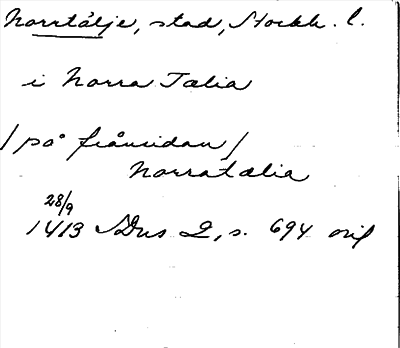 Norrtälje, stad, Stockh. l.
i Norra Tælia
/ på frånsidan /
Norratælia
28/9
1413 SDns 2, s. 694 orig